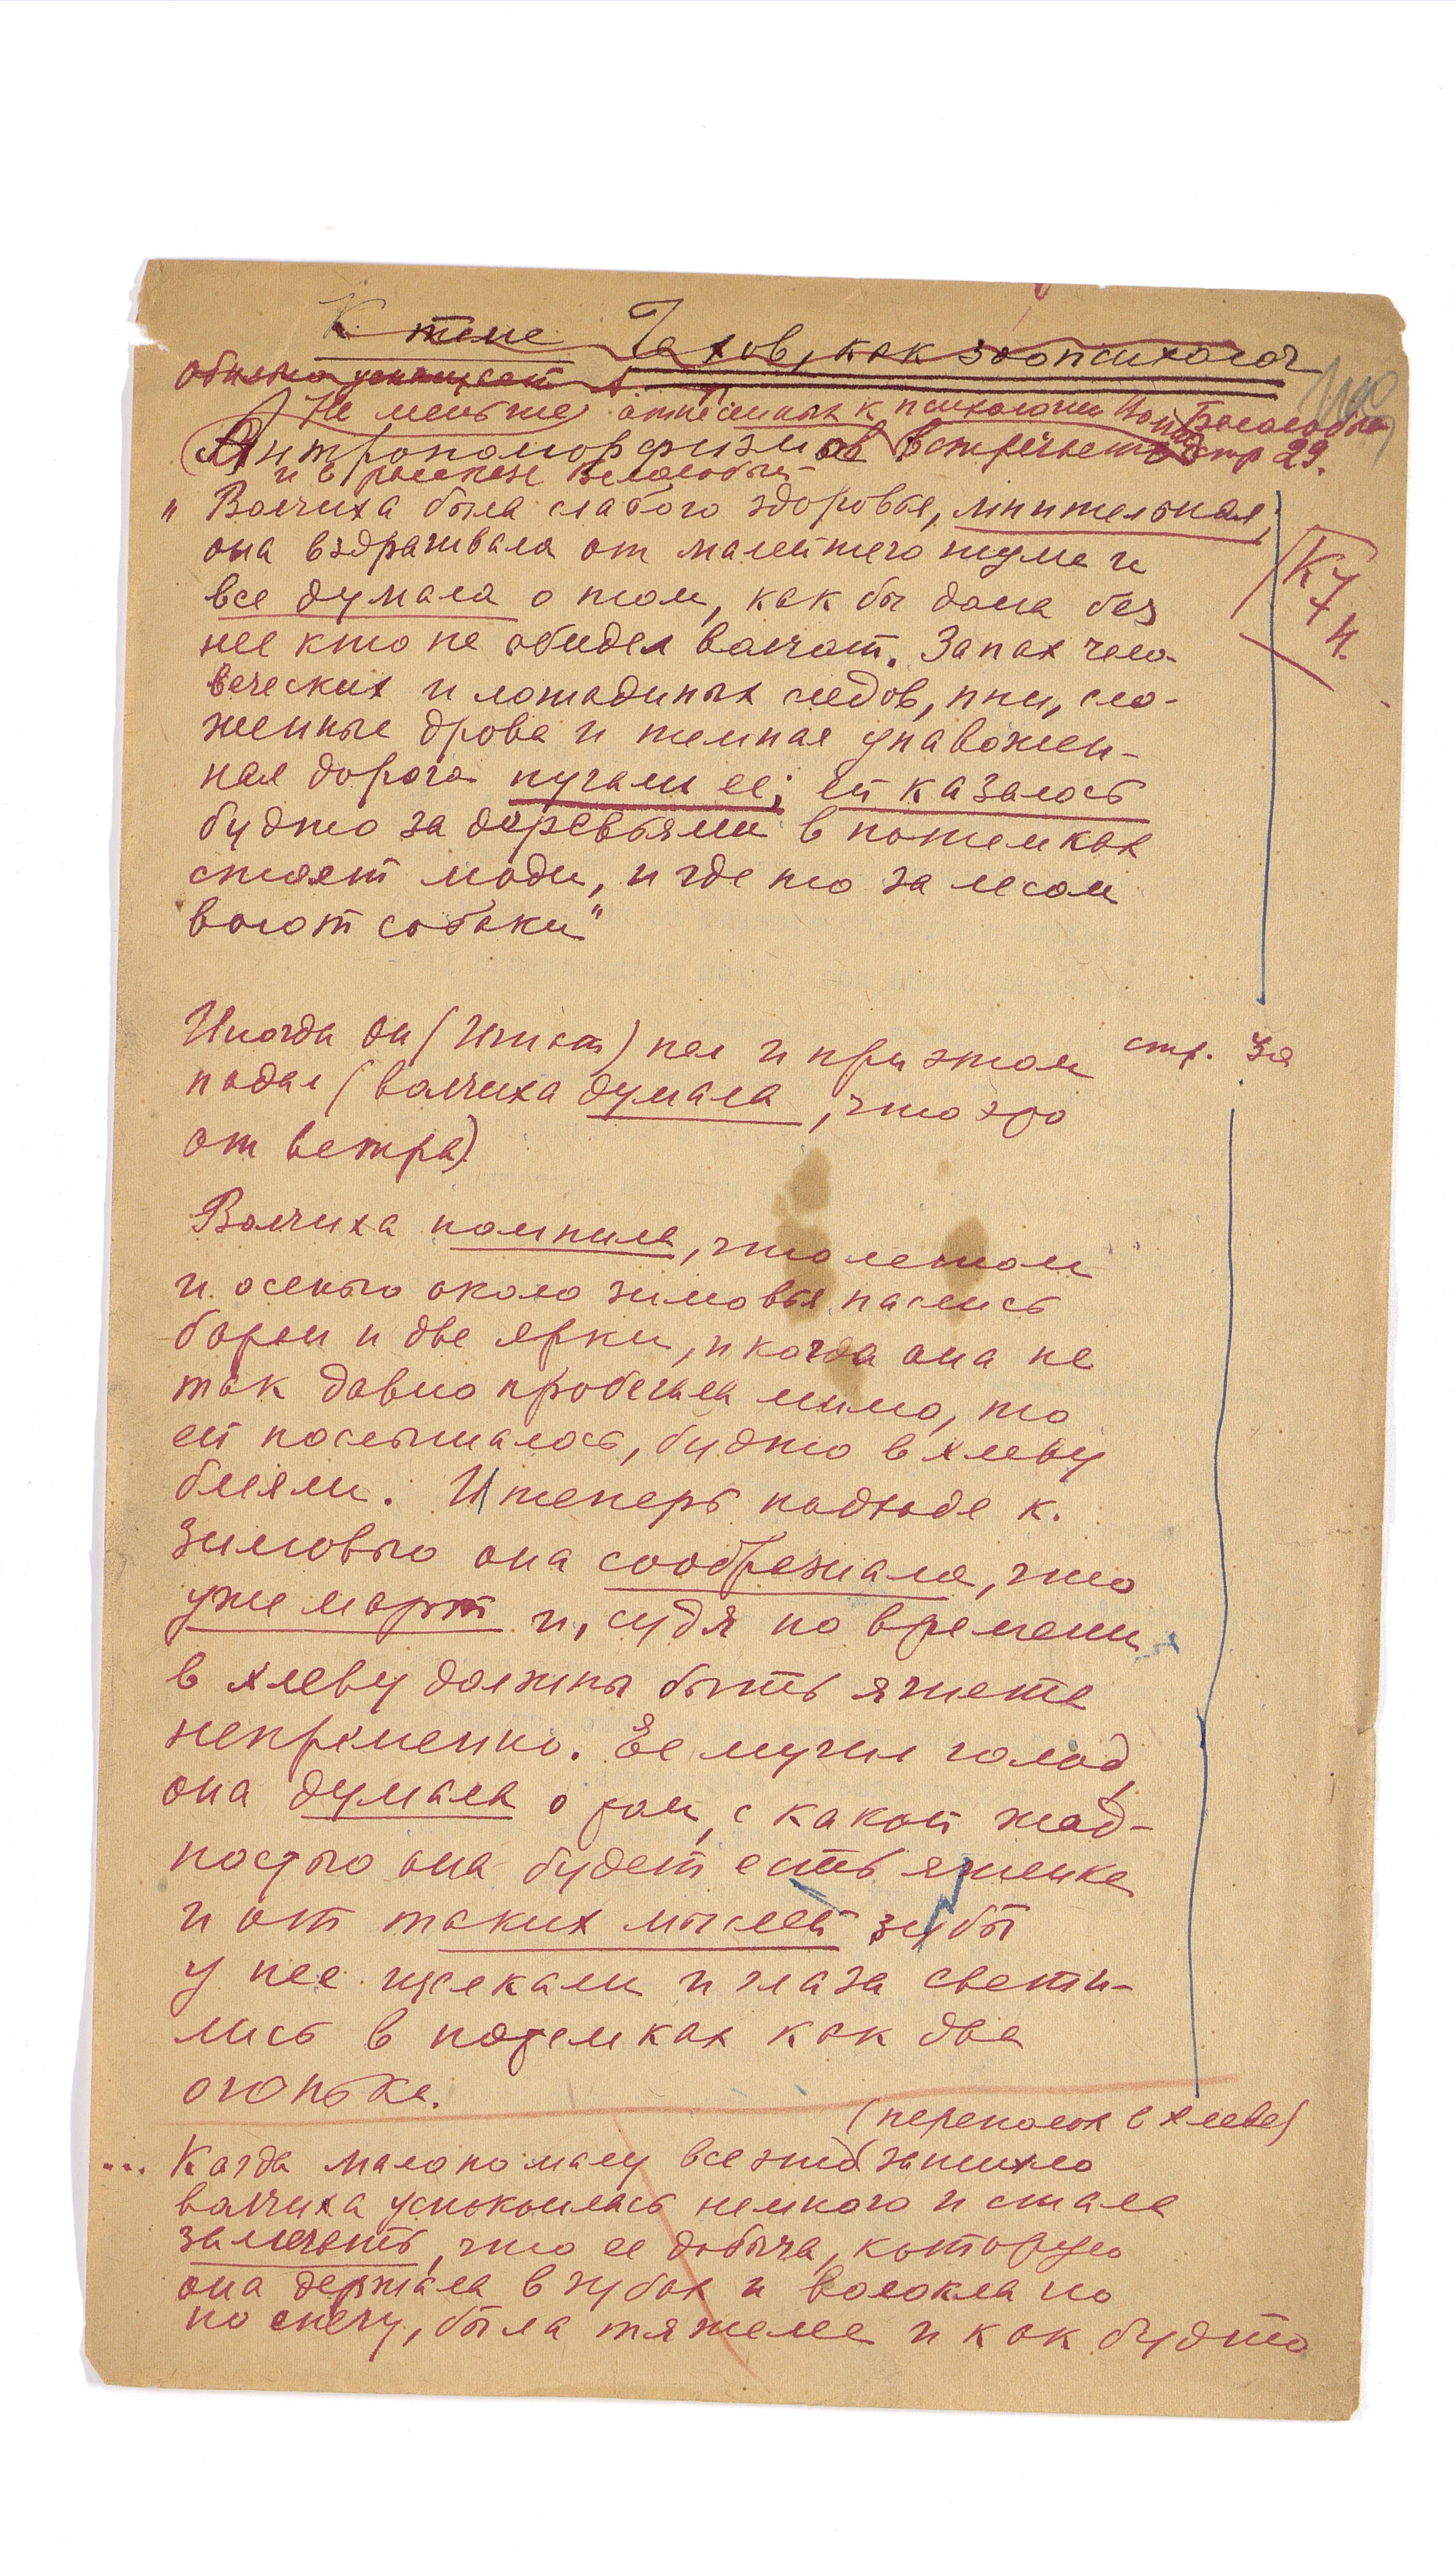 К теме Чехов, как зоопсихолог
Не меньше относимых к психологии
Антропоморфизмов встречает стр 29.
и в рассказе Белолобый
" Волчиха была слабого здоровья, мнительная,
она вздрагивала от малейшего шума и
все думала о том, как бы дома без
нее кто не обидел волчат. Запах чело-
веческих и лошадиных следов, пни, сло-
женные дрова и темная унавожен-
ная дорога пугали ее; ей казалось
будто за деревьями в потемках
стоят люди, и где то за лесом
воют собаки"
Иногда он (Игнат) пел и при этом стр. 30
падал (волчиха думала, что это
от ветра)
Волчиха помнила, что летом
и осенью около зимовья паслись
баран и две ярки, и когда она не
так давно пробегала мимо, то
ей послышалось, будто в хлеву
блеяли. И теперь подходя к.
зимовью она соображала, что
уже март и, судя по времени
в хлеву должны быть ягнята
непременно. Ее мучил голод,
она думала о том, с какой жад-
ностью она будет есть ягненка
и от таких мыслей зубы
у нее щелкали и глаза свети-
лись в потемках как два
огонька.
(переполох в хлеве)
... Когда мало по малу все это затихло
волчиха успокоилась немного и стала
замечать, что ее добыча, которую
она держала в зубах и волокла по
по снегу, была тяжелее и как будто